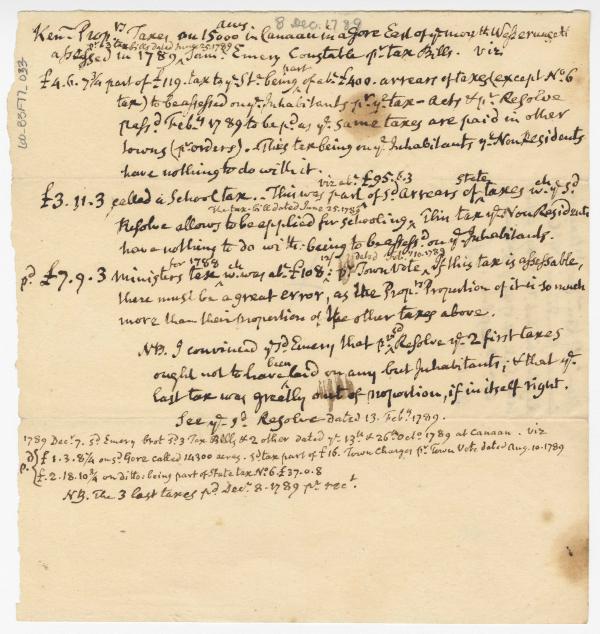 8 Dec. 1789
acrs.
Kenn. Propn.rs Taxes, on 15000 in Canaan in a Gore East of ye mouth Wesserunsett
pr 3 tax bills dated June 25. 1789
assessed in 1789 ^ Sam. Emery Constable pr tax Bills. viz
£4.6.7¾ part of £119. tax to ye State being part of abt. £400. arrears of taxes (except No. 6
tax) to be assessed on ye Inhabitants pr ye tax-acts & pr Resolve
pass'd Feby. 1789 to be pd. as ye same taxes are paid in other
towns (pr orders). This tax being on ye Inhabitants ye Non Residents
have nothing to do with it.
viz abt. £95.6.3
£3.11.3 called a School tax. This was part of sd. arrears of state taxes wch. ye sd.
The tax-bill dated June 25. 1789
Resolve allows to be applied for schooling, ^ This tax ye Non Residents
have nothing to do with - being to be assess'd on ye Inhabitants.
for 1788
pd £7.9.3 ministers tax wch. was abt. £108: pr Town Vote ^ If this tax is assessable,
there must be a great error, as the Propn.rs Proportion of it is so much
more than their proportion of the other taxes above.
NB. I convinced ye sd. Emery that pr sd Resolve ye 2 first taxes
ought not to have been laid on any but Inhabitants; & that ye
last tax was greatly out of proportion, if in itself right.
See ye sd. Resolve dated 13. Feby. 1789.
1789 Decr. 7. sd. Emery brot. sd. 3 Tax Bills & 2 other dated ye 13th & 26th Octo. 1789 at Canaan. viz
pd. { £1.3.8¼ on sd. Gore called 14300 acres. sd. tax part of £16. Town Charges pr. Town Vote dated Aug. 10. 1789
£.2.18.10¾ on Ditto: being part of State tax No. 6 £37.0.8
NB. The 3 last taxes pd. Decr. 8. 1789 pr rect.